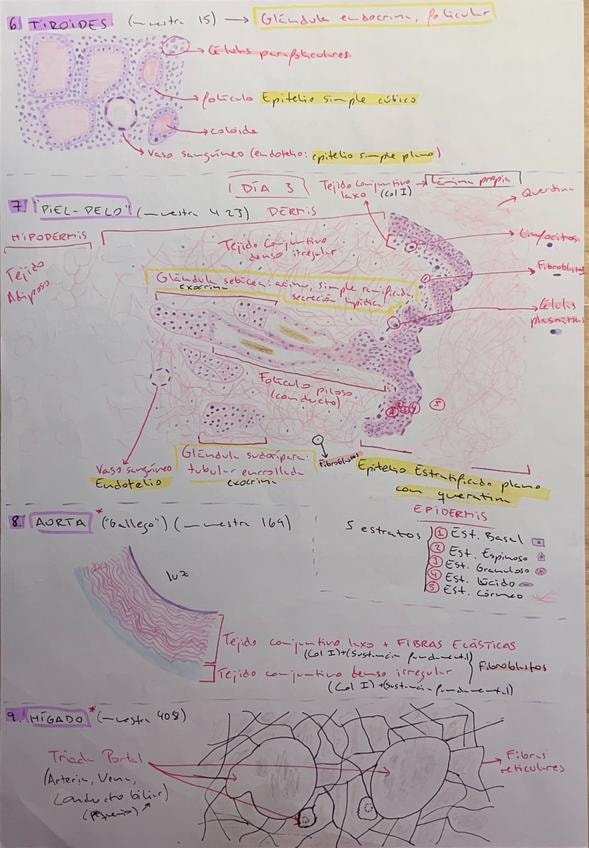 6. TIROIDES (muestra 15) → Glándula endocrina, folicular
Células parafoliculares
folículo Epitelio simple cúbico
coloide
Vaso sanguíneo (endotelio: epitelio simple plano)
DÍA 3
Tejido conjuntivo laxo (Col I) → Lámina propia
7. "PIEL-PELO" (muestra 423) DERMIS
Queratina
HIPODERMIS
Tejido Adiposo
Tejido conjuntivo denso irregular
Linfocitos
Fibroblastos
Células plasmáticas
Glándula sebácea: acinar, simple ramificada
exocrina secreción lipídica
Folículo piloso
(conducto)
Vaso sanguíneo
Endotelio
Glándula sudorípara:
tubular enrollada
exocrina
Fibroblastos
Epitelio Estratificado plano
con queratina
EPIDERMIS
5 estratos
① Est. Basal
② Est. Espinoso
③ Est. Granuloso
④ Est. Lúcido
⑤ Est. Córneo
8. AORTA* ("Gallego") (muestra 169)
luz
Tejido conjuntivo laxo + FIBRAS ELÁSTICAS
(Col I)+(Sustancia fundamental)
Fibroblastos
Tejido conjuntivo denso irregular
(Col I)+(Sustancia fundamental)
9. HÍGADO* (muestra 408)
Triada Portal
(Arteria, Vena,
Conducto biliar)
(pequeño)
Fibras reticulares